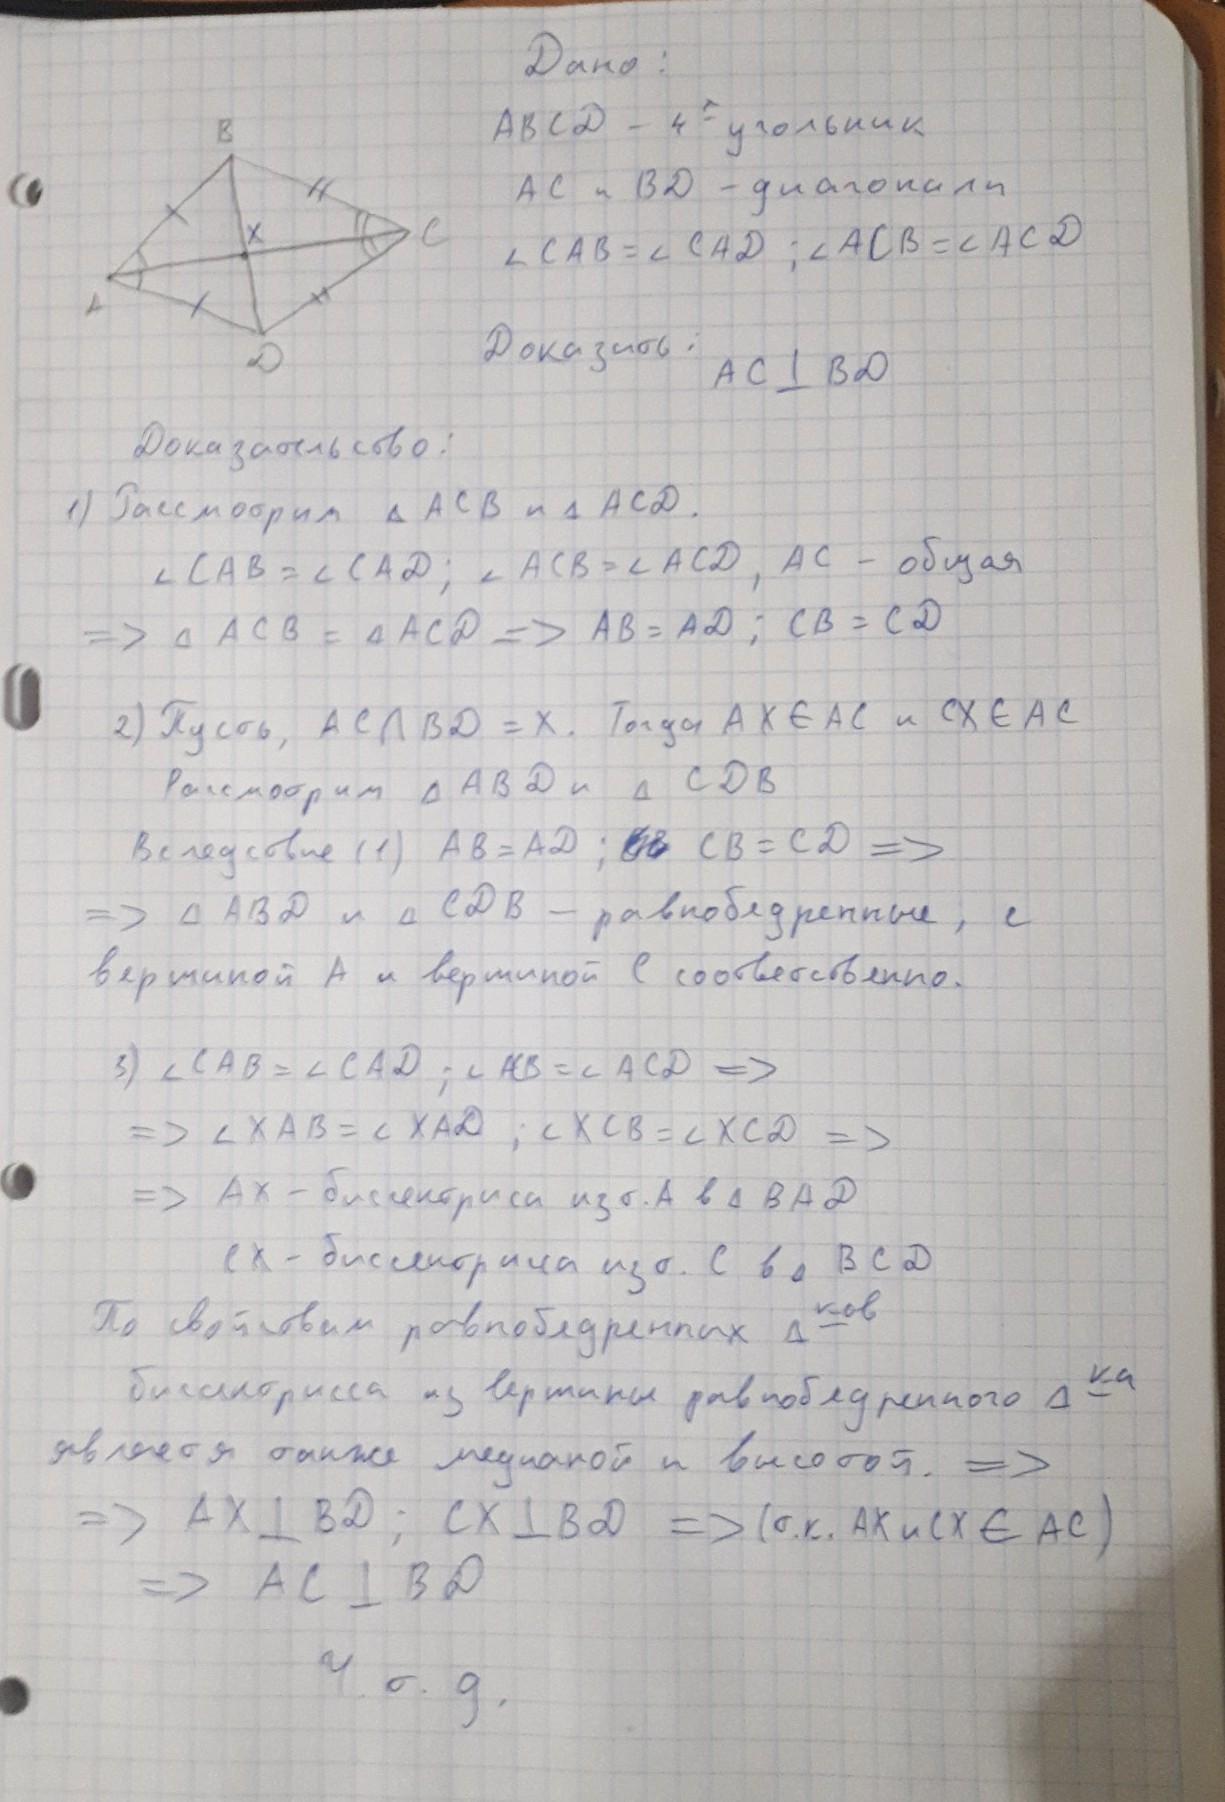 Дано:
ABCD - 4-угольник
AC и BD - диагонали
∠CAB = ∠CAD ; ∠ACB = ∠ACD
Доказать:
AC ⊥ BD
B
X
C
A
D
Доказательство:
1) Рассмотрим △ ACB и △ ACD.
∠CAB = ∠CAD; ∠ ACB = ∠ACD, AC - общая
=> △ ACB = △ ACD => AB = AD ; CB = CD
2) Пусть, AC ∩ BD = X. Тогда AX ∈ AC и CX ∈ AC
Рассмотрим △ ABD и △ CDB
Вследствие (1) AB = AD ; CB = CD =>
=> △ ABD и △ CDB - равнобедренные, с
вершиной A и вершиной C соответственно.
3) ∠CAB = ∠CAD ; ∠ACB = ∠ACD =>
=> ∠XAB = ∠XAD ; ∠XCB = ∠XCD =>
=> AX - биссектриса из т. A в △ BAD
CX - биссектриса из т. C в △ BCD
По свойствам равнобедренных △ков
биссектрисса из вершины равнобедренного △ка
является также медианой и высотой. =>
=> AX ⊥ BD ; CX ⊥ BD => (т.к. AX и CX ∈ AC)
=> AC ⊥ BD
Ч. т. д.